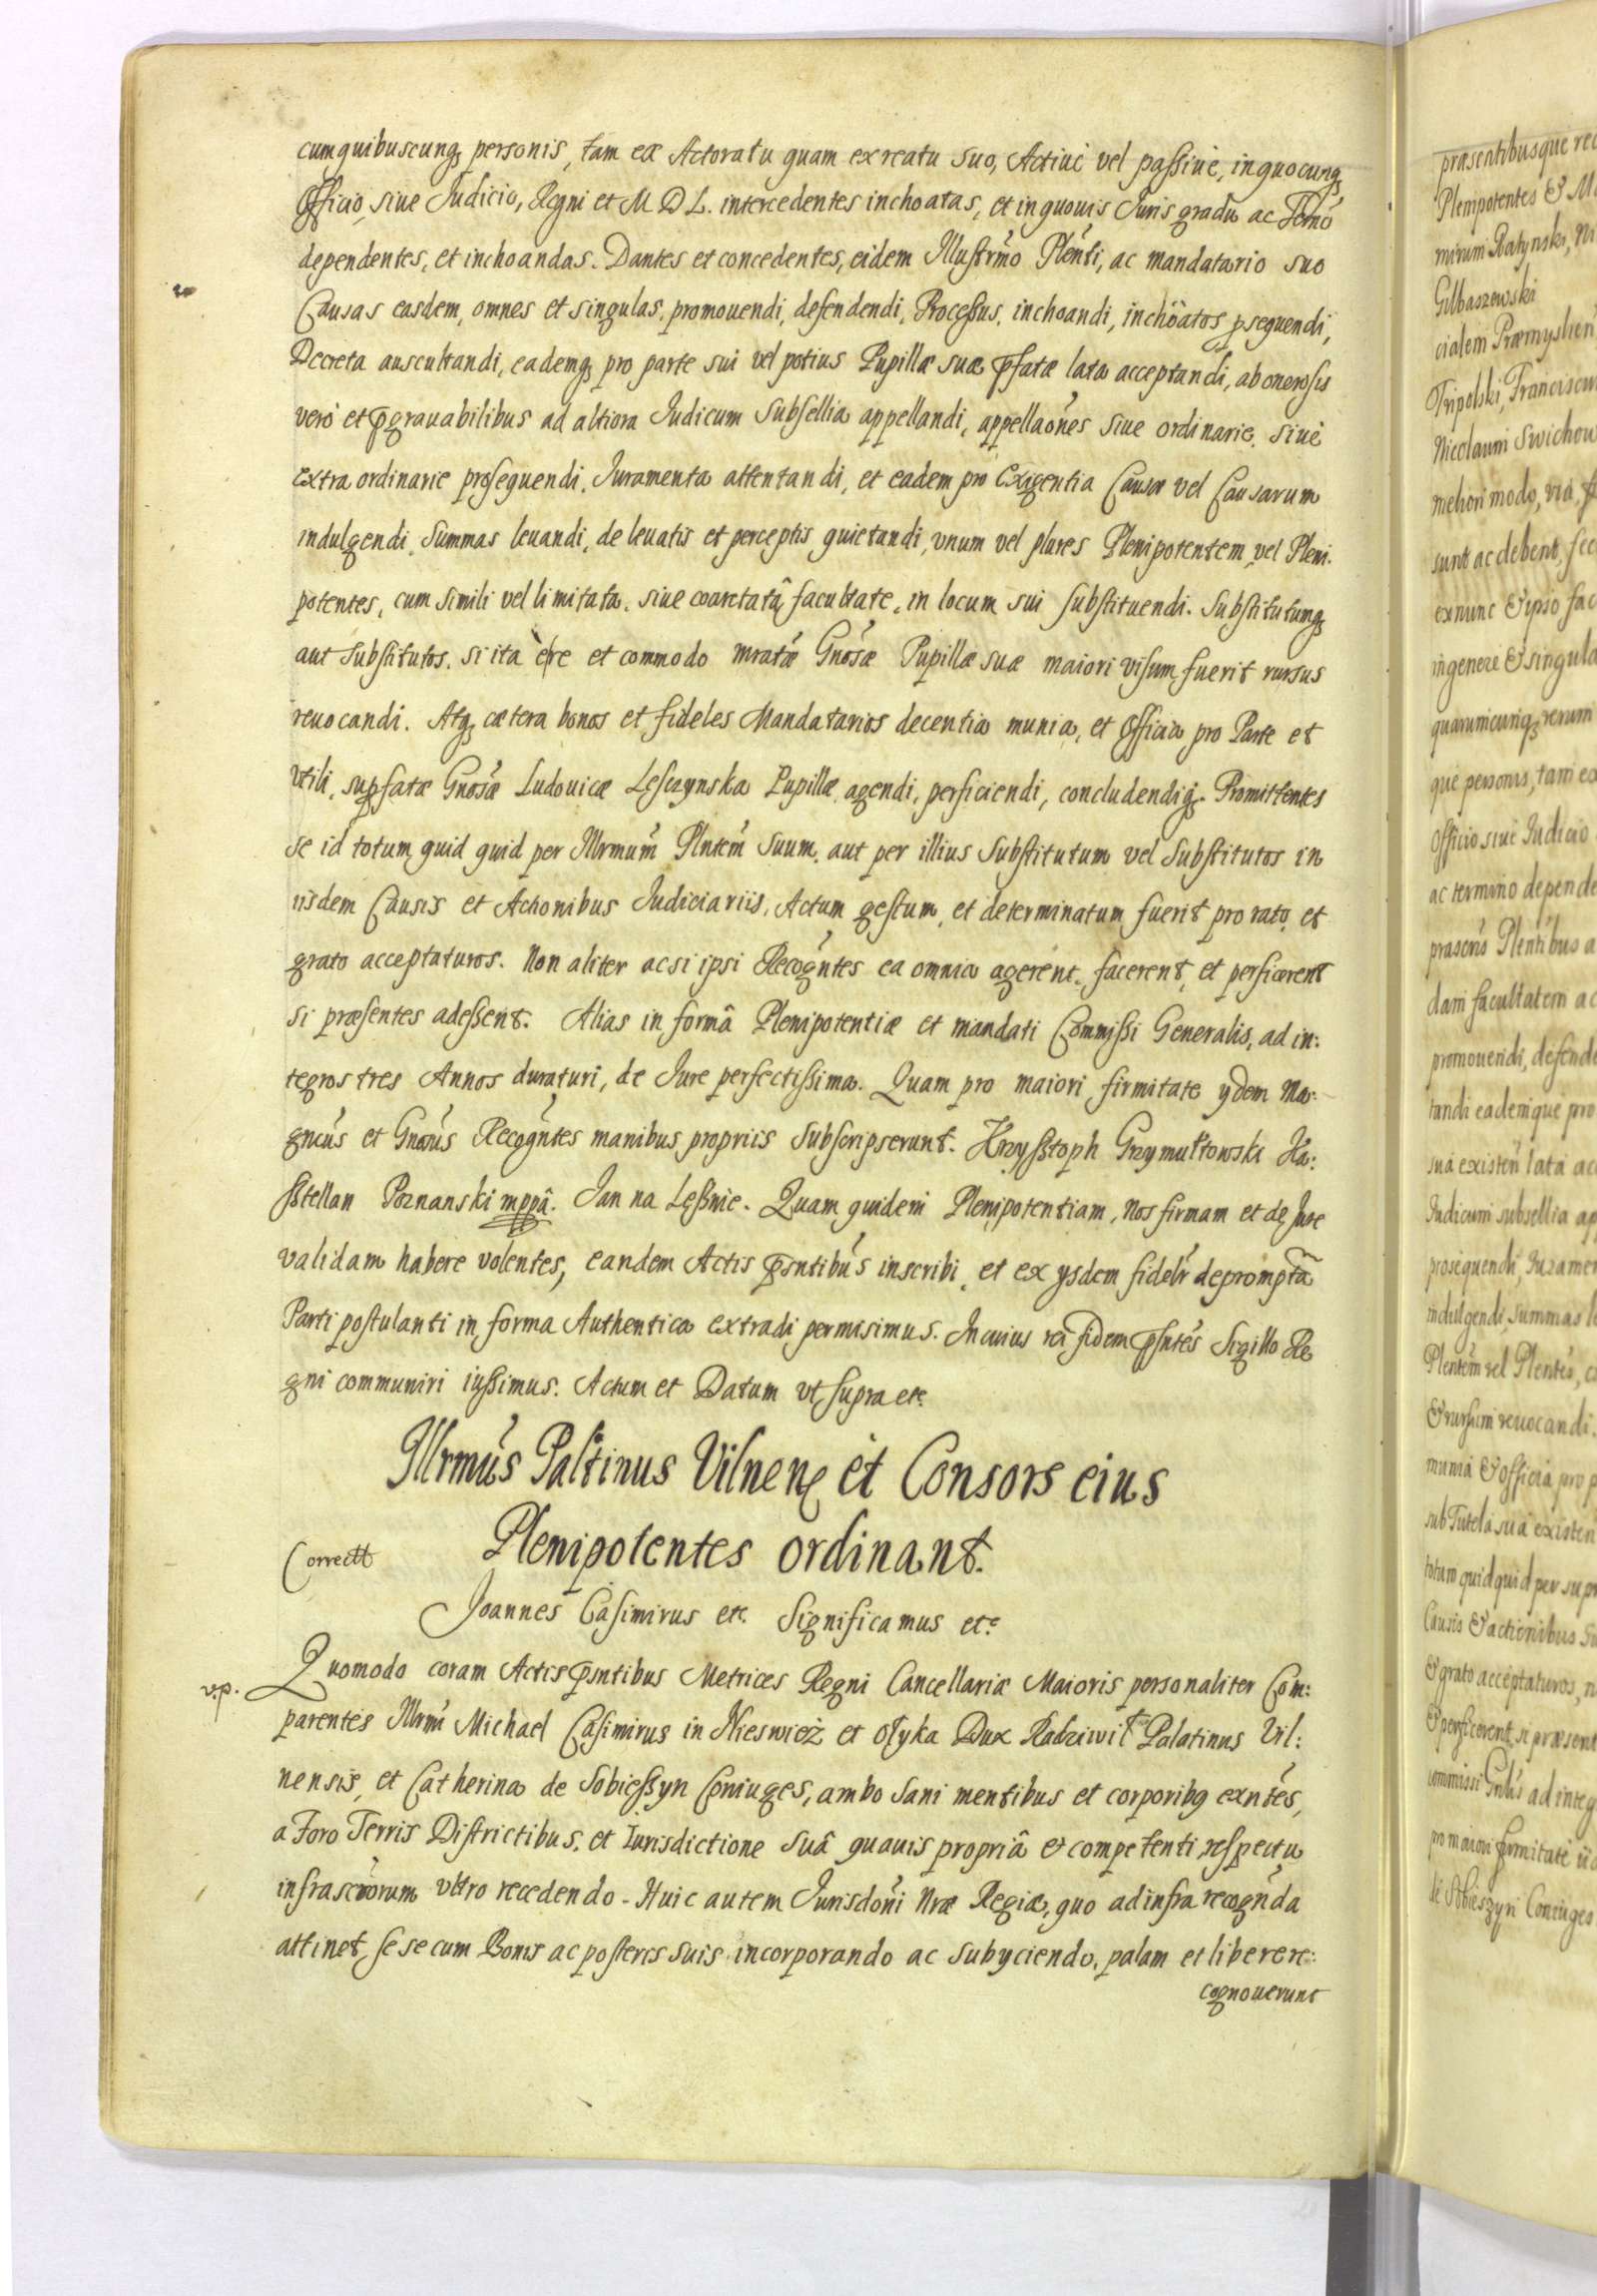 cumquibuscunq personis, tam ex Actoratu quam exreatu suo, Actiuè vel passiuè, inquocunq
Officio, siue Iudicio, Regni et M D L. intercedentes inchoatas, et inquouis Iuris gradu ac Termo
dependentes, et inchoandas. Dantes et concedentes, eidem Illustrmo Plenti, ac mandatario suo
Causas easdem, omnes et singulas, promouendi, defendendi, Processus, inchoandi, inchoatos psequendi,
Decreta auscultandi, eademq pro parte sui vel potius Pupillæ suæ pfatæ lata acceptandi, ab onerosis
verò et pgrauabilibus ad altiora Iudicum Subsellia appellandi, appellaones siue ordinarie, siuè
extra ordinarie prosequendi, Iuramenta attentandi, et eadem pro Exigentia Causæ vel Causarum
indulgendi, Summas leuandi, de leuatis et perceptis quietandi, vnum vel plures Plenipotentem, vel Pleni.
potentes, cum simili vel limitata, siue coarctatâ facultate, in locum sui substituendi. Substitutumq
aut Substitutos, si ita è re et commodo mratæ Gnosæ Pupillæ suæ maiori visum fuerit rursus
reuocandi. Atq cætera bonos et fideles Mandatarios decentia munia, et Officia pro Parte et
vtili, supfatæ Gnosæ Ludouicæ Lesczynska Pupillæ agendi, perficiendi, concludendiq. Promittentes
se id totum quid quid per Illrmum Plntem suum, aut per illius Substitutum vel Substitutos in
iisdem Causis et Actionibus Iudiciariis, Actum gestum, et determinatum fuerit pro rato, et
grato acceptaturos. Non aliter ac si ipsi Recogntes ea omnia agerent, facerent, et perficerent
si præsentes adessent. Alias in formâ Plenipotentiæ et mandati Commissi Generalis, ad in:
tegros tres Annos duraturi, de Iure perfectissima. Quam pro maiori firmitate ydem Ma:
gncus et Gnosus Recogntes manibus propriis Subscripserunt. Krzysstoph Grzymułtowski Ka:
sstellan Poznanski mppâ. Jan na Lessnie. Quam quidem Plenipotentiam, Nos firmam et de Iure
validam habere volentes, eandem Actis psntibus inscribi, et ex ysdem fidelr depromptã
Parti postulanti in forma Authentica extradi permisimus. In cuius rei fidem psntes Sigillo Re
gni communiri iussimus. Actum et Datum vt supra etc
Illrmus Paltinus Vilnen et Consors eius
Plenipotentes ordinant.
Correctt
Joannes Casimirus etc. Significamus etc
v.p.
Quomodo coram Actis psntibus Metrices Regni Cancellariæ Maioris personaliter Com:
parentes Illrmi Michael Casimirus in Nieswież et Ołyka Dux Radziwił Palatinus Vil:
nensis, et Catherina de Sobiessyn Coniuges, ambo sani mentibus et corporibq exntes,
a Foro Terris Districtibus, et Iurisdictione suâ quauis propriâ et competenti respectu
infrascrorum vltro recedendo - Huic autem Iurisdoni Nræ Regiæ, quo ad infra recognda
attinet, sese cum Bonis ac posteris suis incorporando ac subyciendo, palam et libere re:
cognouerunt
præsentibusque rec
Plenipotentes & M
mirum Ratynski, Ni
Gilbaszewski
cialem Præmyslien
Tripolski, Franciscum
Nicolaum Swichow
meliori modo, via,
sunt ac debent,
exnunc & ipso fac
ingenere & singula
quarumcunq, rerum
que personis, tam ex
Officio siuè Iudicio
ac termino depende
præscris Plentibus a
dam facultatem ac
promouendi, defende
tandi eademque pro
suâ existen lata ac
Iudicum subsellia ap
prosequendi, Iuramen
indulgendi, summas le
Plentem vel Plentes, c
& rursum reuocandi.
munia & officia pro p
sub Tutela suâ existen
totum quidquid per supr
Causis & actionibus
& grato acceptaturos, n
& perficerent, si præsent
commissi Gnlis ad integ
pro maiori firmitate
de Sobieszyn Coniuges